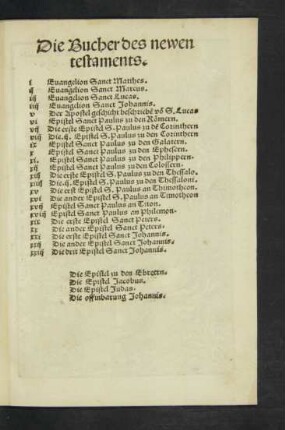 Die Bucher des newen
testaments.
i Euangelion Sanct Matthes.
ij Euangelion Sanct Marcus.
iij Euangelion Sanct Lucas.
iiij Euangelion Sanct Johannis.
v Der Apostel geschicht beschriebē võ S. Lucas
vi Epistel Sanct Paulus zu den Römern.
vij Die erste Epistel S. Paulus zu dē Corinthern
viij Die .ij. Epistel S. Paulus zu den Corinthern
ix Epistel Sanct Paulus zu den Galatern.
x Epistel Sanct Paulus zu den Ephesern.
xi. Epistel Sanct Paulus zu den Philippern.
xij Epistel Sanct Paulus zu den Colossern.
xiij Die erste Epistel S. Paulus zu den Thessalo.
xiiij Die .ij. Epistel S. Paulus zu den Thessaloni.
xv Die erst Epistel S. Paulus an Thimotheon.
xvi Die ander Epistel S. Paulus an Timotheon
xvij Epistel Sanct Paulus an Titon.
xviij Epistel Sanct Paulus an Philemon.
xix Die erste Epistel Sanct Peters.
xx Die ander Epistel Sanct Peters.
xxi Die erste Epistel Sanct Johannis.
xxij Die ander Epistel Sanct Johannis.
xxiij Die drit Epistel Sanct Johannis.
Die Epistel zu den Ebreern.
Die Epistel Jacobus.
Die Epistel Judas.
Die offinbarung Johannis.